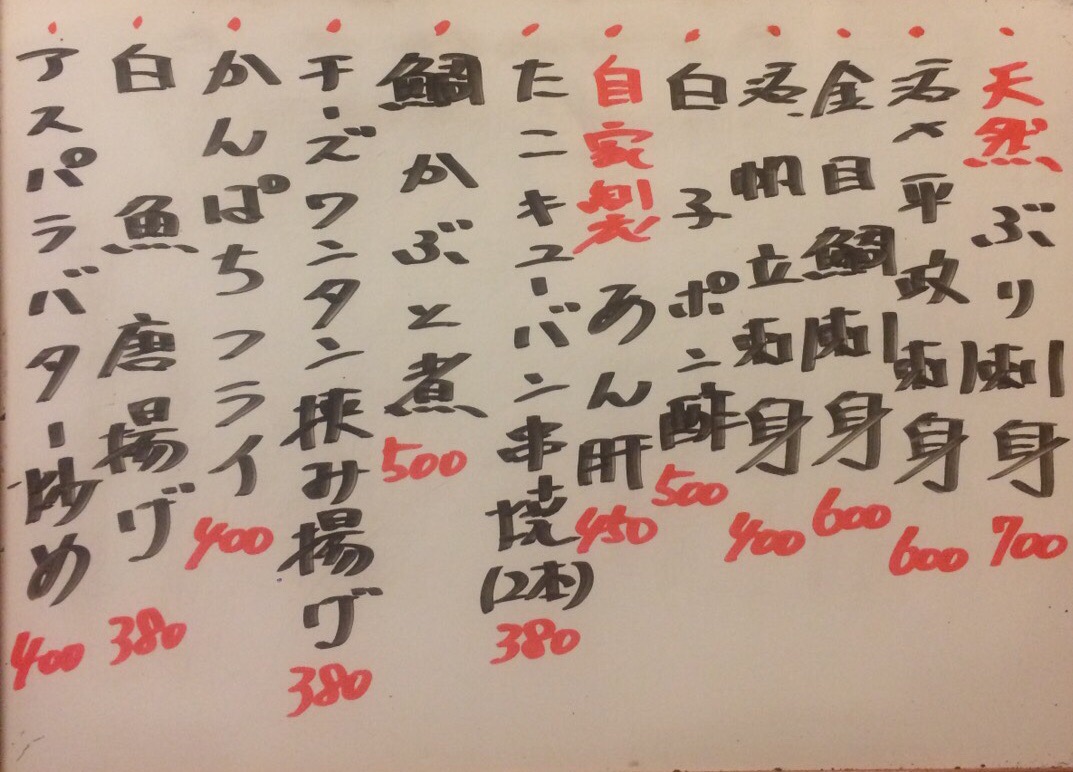 天然ぶり刺身 700
活〆平政刺身 600
金目鯛刺身 600
活帆立刺身 400
白子ポン酢 500
自家製あん肝 450
たこキューバン串焼(2本) 380
鯛かぶと煮 500
チーズワンタン挟み揚げ 380
かんぱちフライ 400
白魚唐揚げ 380
アスパラバター炒め 400